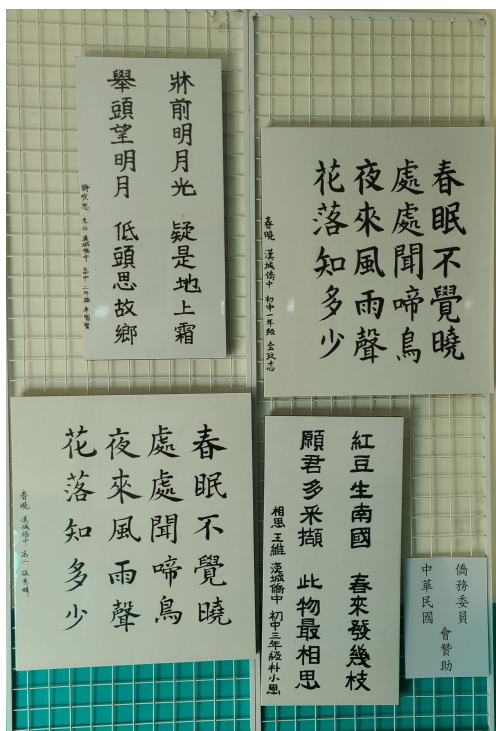 牀前明月光 疑是地上霜
舉頭望明月 低頭思故鄉
靜夜思 李白 漢城僑中 高中二年級
春眠不覺曉
處處聞啼鳥
夜來風雨聲
花落知多少
春曉 漢城僑中 初中一年級 金玟志
春眠不覺曉
處處聞啼鳥
夜來風雨聲
花落知多少
春曉 漢城僑中 高二
紅豆生南國 春來發幾枝
願君多采擷 此物最相思
相思 王維 漢城僑中 初中三年級朴小恩
中華民國
僑務委員
會贊助